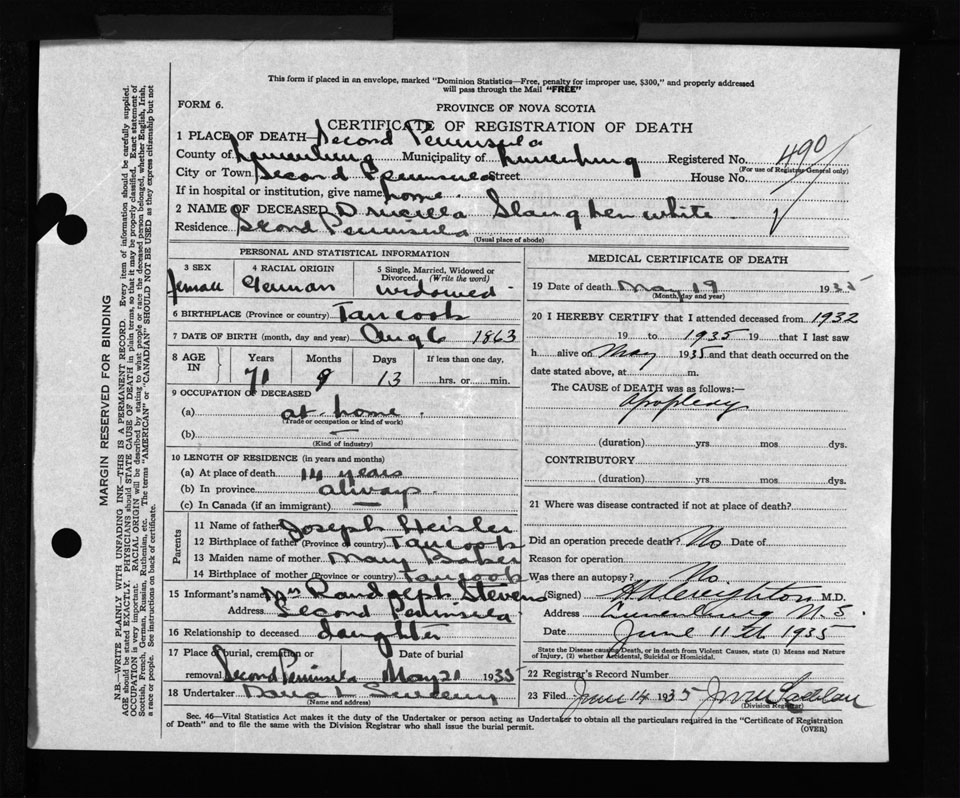 This form if placed in an envelope, marked "Dominion Statistics—Free, penalty for improper use, $300," and properly addressed
will pass through the Mail "FREE"
FORM 6.
PROVINCE OF NOVA SCOTIA
CERTIFICATE OF REGISTRATION OF DEATH
1 PLACE OF DEATH— Second Peninsula
County of Lunenburg Municipality of Lunenburg Registered No. 490
(For use of Registrar General only)
City or Town Second Peninsula Street House No.
If in hospital or institution, give name home
2 NAME OF DECEASED Drucilla Slaughenwhite
Residence Second Peninsula
(Usual place of abode)
PERSONAL AND STATISTICAL INFORMATION
3 SEX
female
4 RACIAL ORIGIN
German
5 Single, Married, Widowed or
Divorced. (Write the word)
widowed
6 BIRTHPLACE (Province or country) Tancook
7 DATE OF BIRTH (month, day and year) Aug 6 1863
8 AGE IN
Years Months Days If less than one day,
71 9 13 hrs. or min.
9 OCCUPATION OF DECEASED
(a) at home
(Trade or occupation or kind of work)
(b)
(Kind of industry)
10 LENGTH OF RESIDENCE (in years and months)
(a) At place of death 14 years
(b) In province always
(c) In Canada (if an immigrant) —
Parents
11 Name of father Joseph Heisler
12 Birthplace of father (Province or country) Tancook
13 Maiden name of mother Mary Baker
14 Birthplace of mother (Province or country) Tancook
15 Informant's name Mrs Randolph Stevens
Address Second Peninsula
16 Relationship to deceased daughter
17 Place of burial, cremation or Date of burial
removal Second Peninsula May 21 1935
18 Undertaker
(Name and address)
MEDICAL CERTIFICATE OF DEATH
19 Date of death May 19 1935
(Month, day and year)
20 I HEREBY CERTIFY that I attended deceased from 1932
19 to 1935 19 that I last saw
h alive on May 1935 and that death occurred on the
date stated above, at m.
The CAUSE of DEATH was as follows:—
Apoplexy
(duration) yrs. mos. dys.
CONTRIBUTORY
(duration) yrs. mos. dys.
21 Where was disease contracted if not at place of death?
Did an operation precede death? No Date of
Reason for operation
Was there an autopsy? No
(Signed) Creighton M.D.
Address Lunenburg N.S.
Date June 11th 1935
State the Disease causing Death, or in death from Violent Causes, state (1) Means and Nature
of Injury, (2) whether Accidental, Suicidal or Homicidal.
22 Registrar's Record Number
23 Filed June 14 1935
(Division Registrar)
Sec. 46—Vital Statistics Act makes it the duty of the Undertaker or person acting as Undertaker to obtain all the particulars required in the "Certificate of Registration
of Death" and to file the same with the Division Registrar who shall issue the burial permit.
(OVER)
MARGIN RESERVED FOR BINDING
N.B.—WRITE PLAINLY WITH UNFADING INK—THIS IS A PERMANENT RECORD. Every item of information should be carefully supplied.
AGE should be stated EXACTLY. PHYSICIANS should STATE CAUSE OF DEATH in plain terms, so that it may be properly classified. Exact statement of
OCCUPATION is very important. RACIAL ORIGIN will be described by stating to what people or race the deceased person belonged, whether English, Irish,
Scottish, French, German, Russian, Ruthenian, etc. The terms "AMERICAN" or "CANADIAN" SHOULD NOT BE USED as they express citizenship but not
a race or people. See instructions on back of certificate.